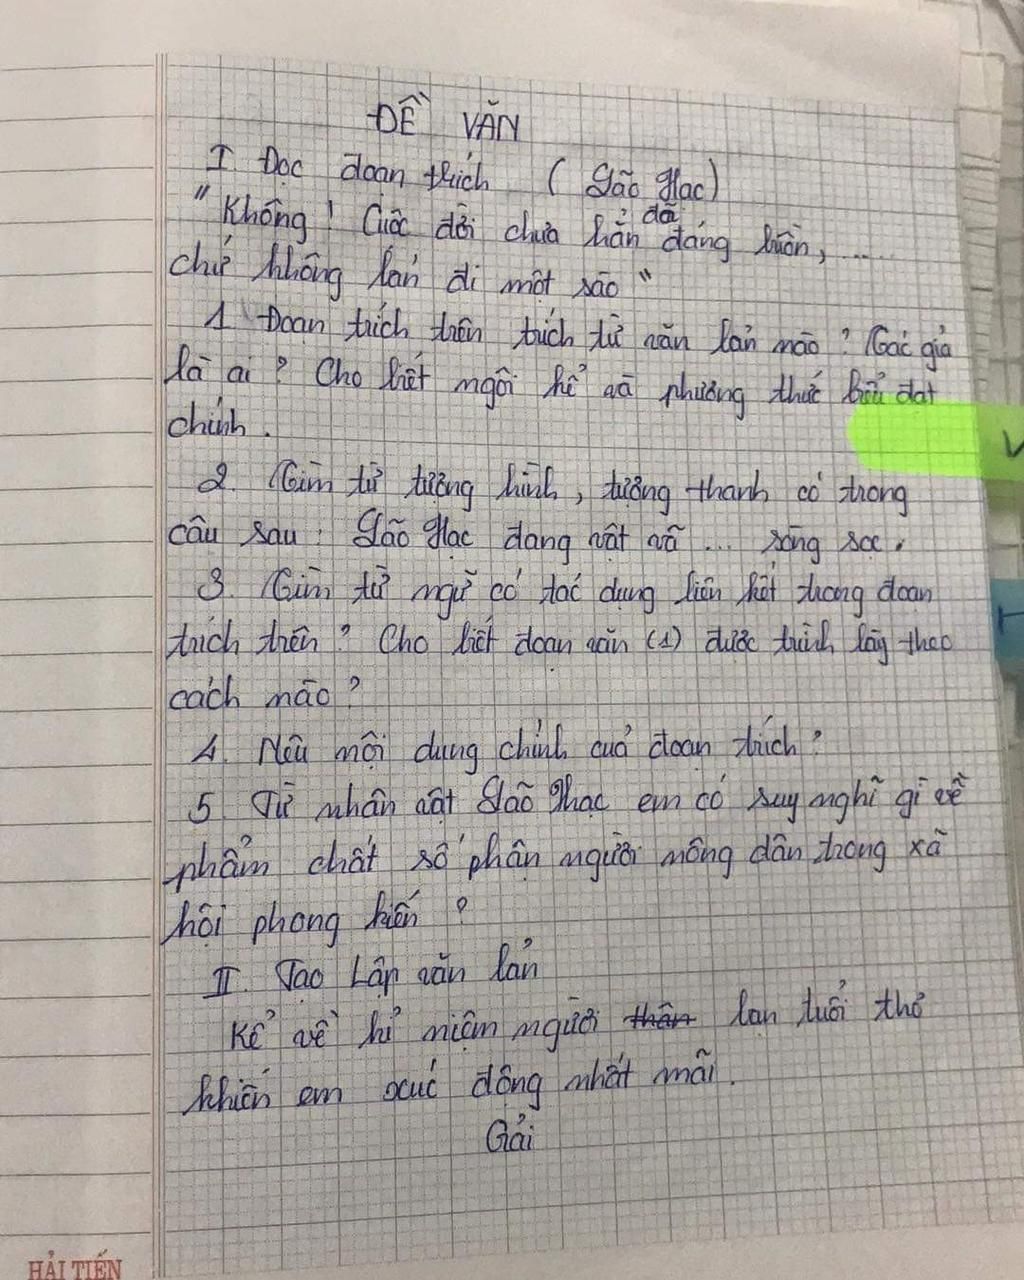 ĐỀ VĂN
I. Đọc đoạn trích ( Lão Hạc)
"Không! Cuộc đời chưa hẳn đã đáng buồn, .....
chứ không bán đi một sào"
1. Đoạn trích trên trích từ văn bản nào? Tác giả
là ai? Cho biết ngôi kể và phương thức biểu đạt
chính.
2. Tìm từ tượng hình, tượng thanh có trong
câu sau: Lão Hạc đang vật vã ... sòng sọc.
3. Tìm từ ngữ có tác dụng liên kết trong đoạn
trích trên? Cho biết đoạn văn (1) được trình bày theo
cách nào?
4. Nêu nội dung chính của đoạn trích?
5. Từ nhân vật Lão Hạc em có suy nghĩ gì về
phẩm chất số phận người nông dân trong xã
hội phong kiến?
II. Tạo Lập văn bản
Kể về kỉ niệm người thân bạn tuổi thơ
khiến em xúc động nhất mãi.
Giải
HẢI TIẾN